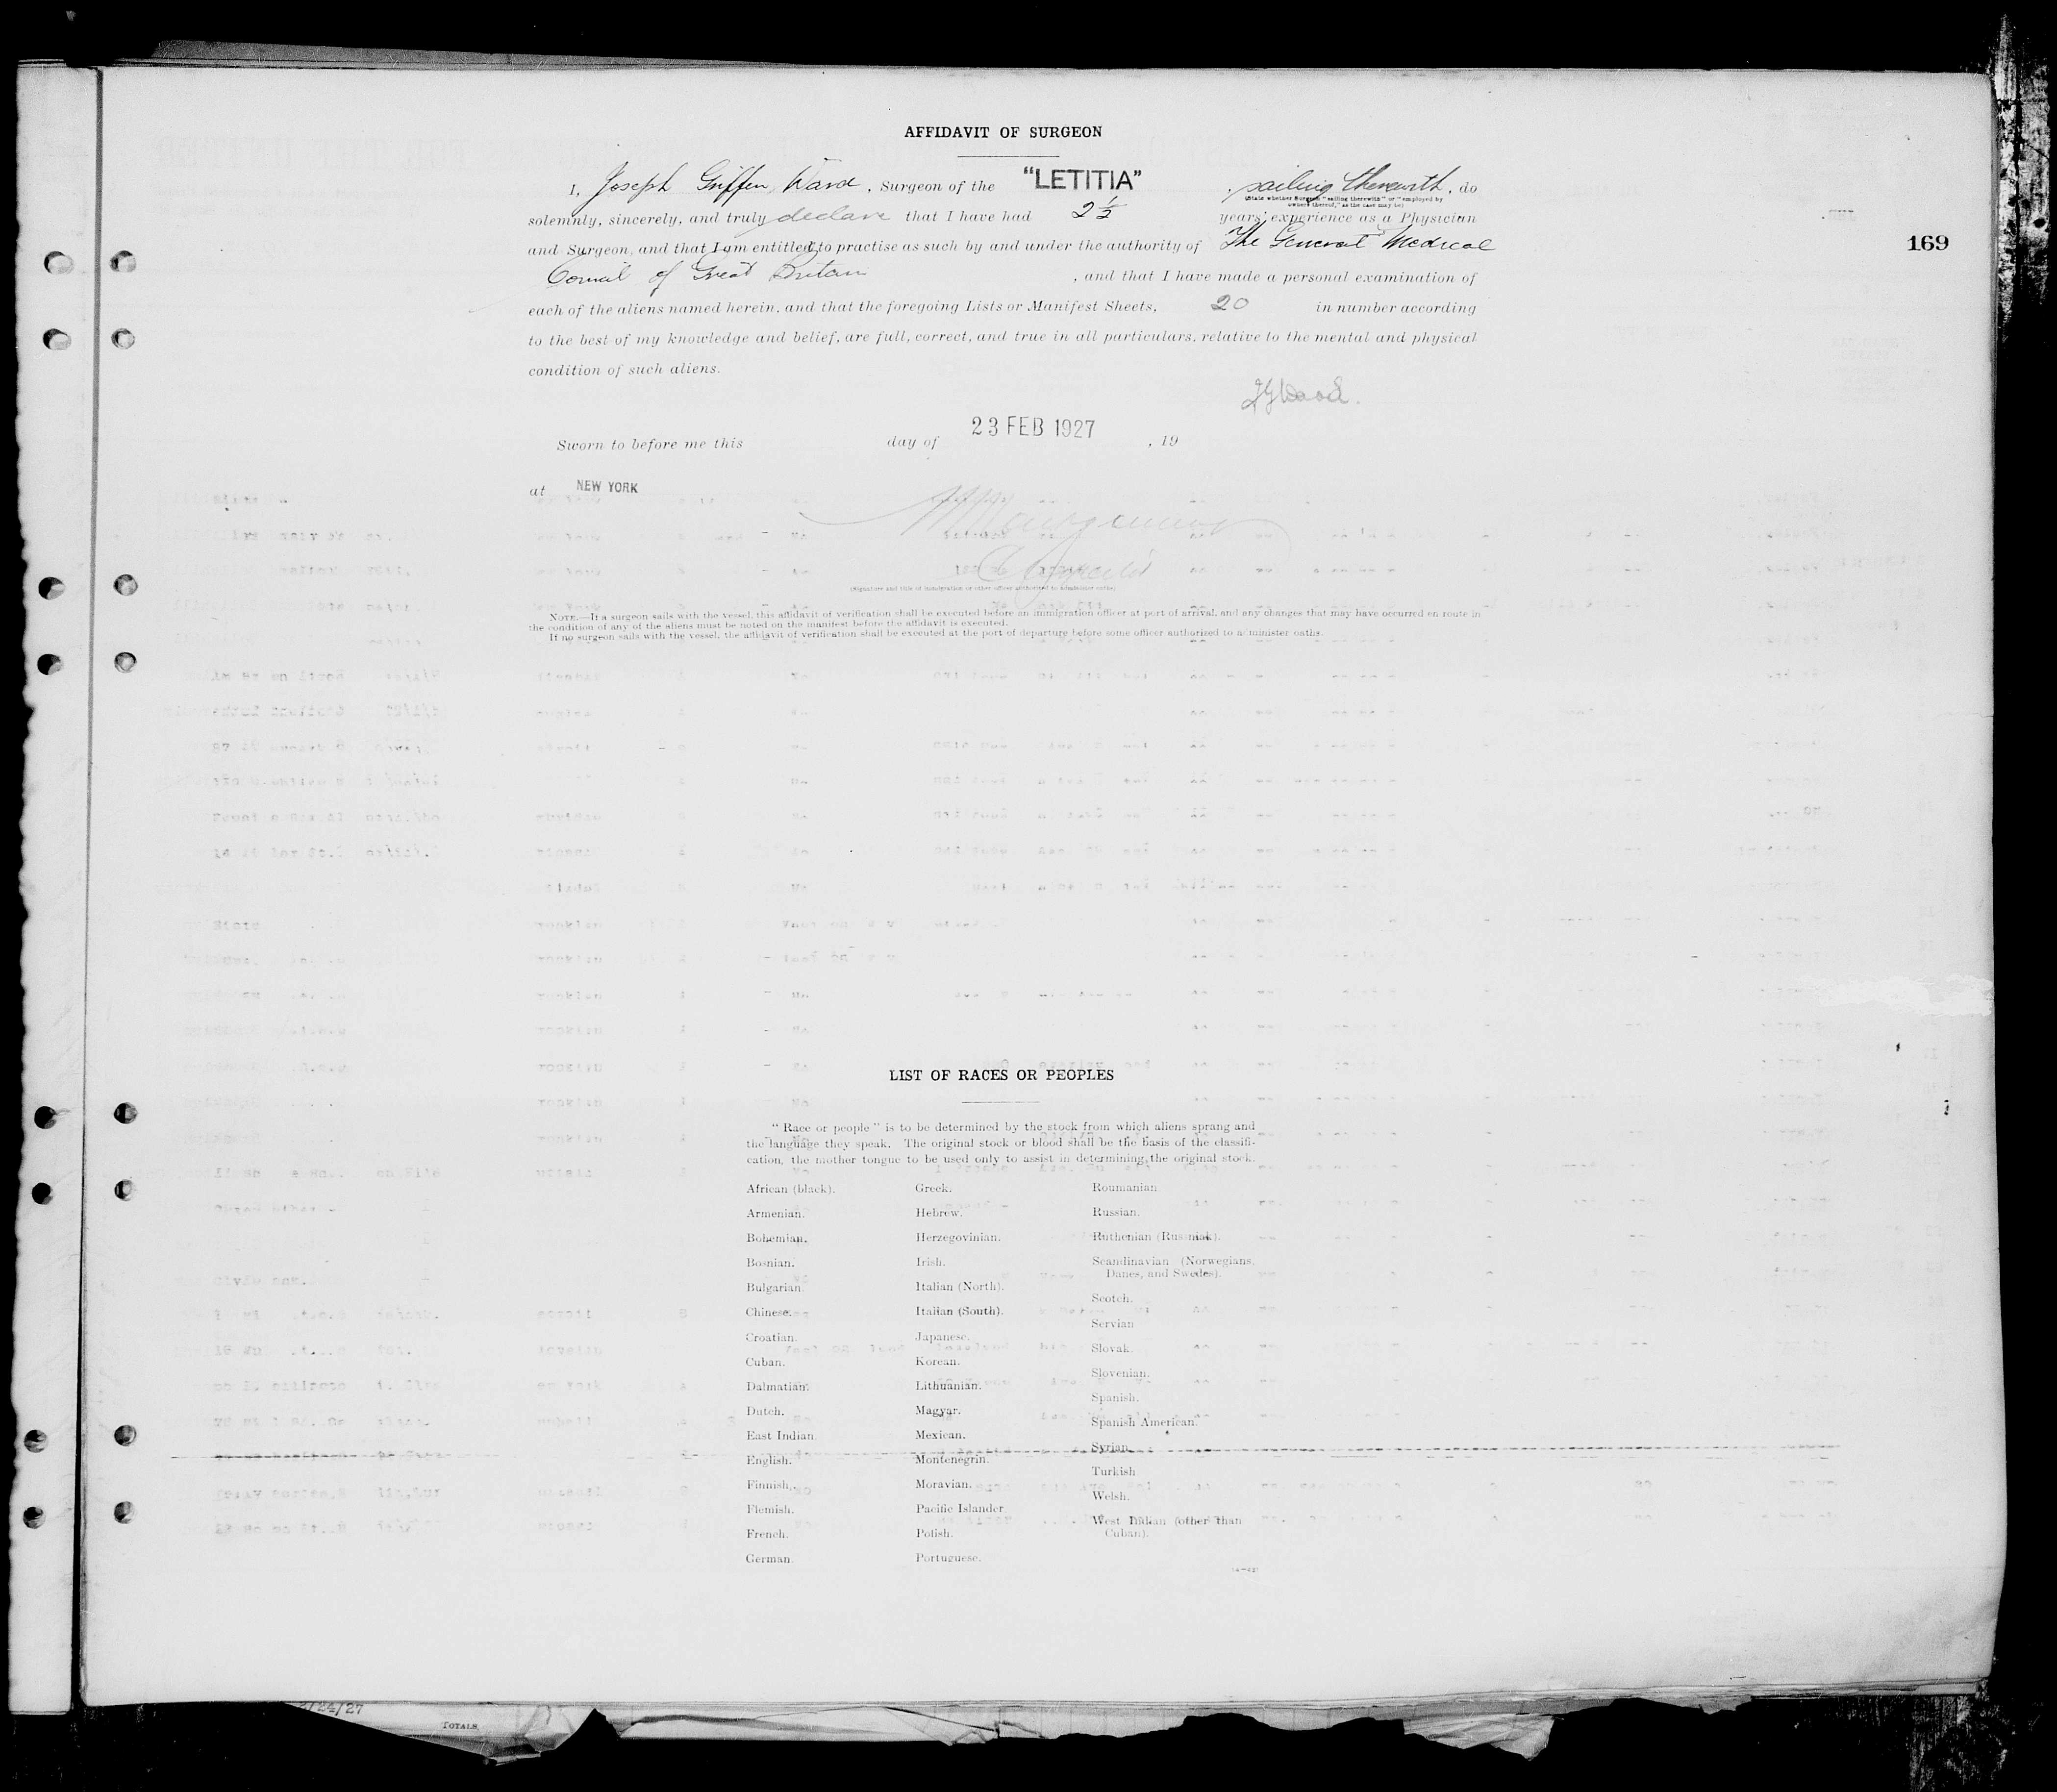 AFFIDAVIT OF SURGEON
169
I, Joseph Griffen Ward, Surgeon of the "LETITIA", sailing therewith, do
(State whether Surgeon "sailing therewith" or "employed by
owners thereof," as the case may be)
solemnly, sincerely, and truly declare that I have had 2½ years' experience as a Physician
and Surgeon, and that I am entitled to practise as such by and under the authority of The General Medical
Council of Great Britain, and that I have made a personal examination of
each of the aliens named herein, and that the foregoing Lists or Manifest Sheets, 20 in number according
to the best of my knowledge and belief, are full, correct, and true in all particulars, relative to the mental and physical
condition of such aliens.
JGWard.
Sworn to before me this day of 23 FEB 1927, 19
at NEW YORK
(Signature and title of immigration or other officer authorized to administer oaths)
NOTE.—If a surgeon sails with the vessel, this affidavit of verification shall be executed before an immigration officer at port of arrival, and any changes that may have occurred en route in
the condition of any of the aliens must be noted on the manifest before the affidavit is executed.
If no surgeon sails with the vessel, the affidavit of verification shall be executed at the port of departure before some officer authorized to administer oaths.
LIST OF RACES OR PEOPLES
"Race or people" is to be determined by the stock from which aliens sprang and
the language they speak. The original stock or blood shall be the basis of the classifi-
cation, the mother tongue to be used only to assist in determining the original stock.
African (black).
Armenian.
Bohemian.
Bosnian.
Bulgarian.
Chinese.
Croatian.
Cuban.
Dalmatian.
Dutch.
East Indian.
English.
Finnish.
Flemish.
French.
German.
Greek.
Hebrew.
Herzegovinian.
Irish.
Italian (North).
Italian (South).
Japanese.
Korean.
Lithuanian.
Magyar.
Mexican.
Montenegrin.
Moravian.
Pacific Islander
Polish.
Portuguese.
Roumanian
Russian.
Ruthenian (Russniak).
Scandinavian (Norwegians,
Danes, and Swedes).
Scotch.
Servian
Slovak.
Slovenian.
Spanish.
Spanish American.
Syrian.
Turkish
Welsh.
West Indian (other than
Cuban).
TOTALS